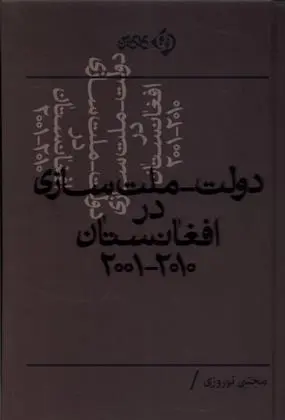 دولت-ملت‌سازی
در
افغانستان
۲۰۰۱-۲۰۱۰
دولت-ملت‌سازی
در
افغانستان
۲۰۰۱-۲۰۱۰
دولت-ملت‌سازی
در
افغانستان
۲۰۰۱-۲۰۱۰
مجتبی نوروزی /